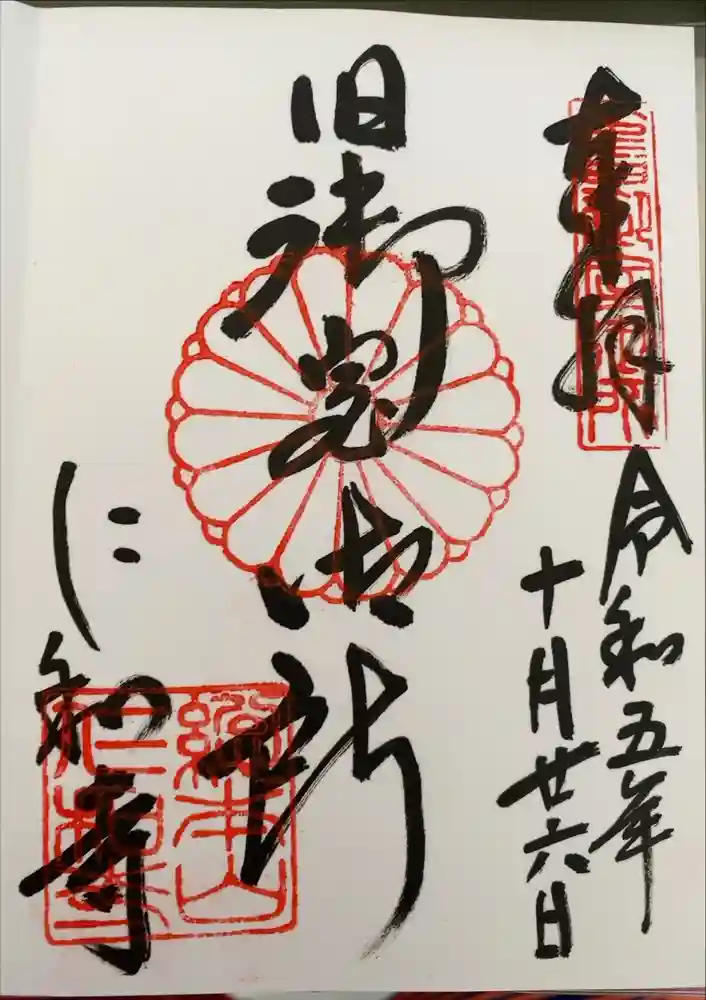 奉拝
令和五年
十月廿六日
旧御室御所
仁和寺
總本山
仁和寺